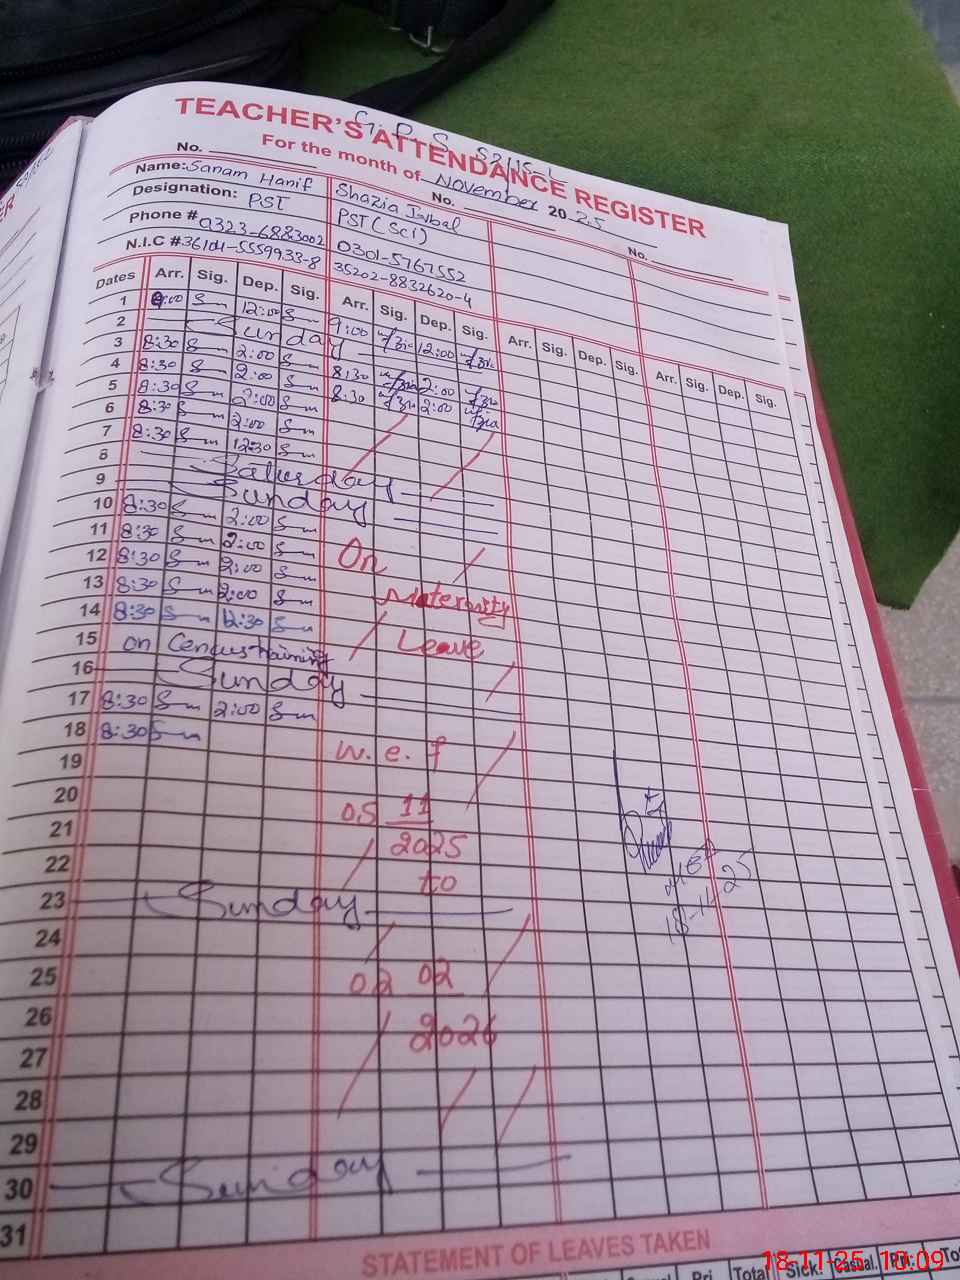 TEACHER'S ATTENDANCE REGISTER
G. P. S 52/15-L
For the month of November 2025
No. No. No.
Name: Sanam Hanif Shazia Iqbal
Designation: PST PST (Sci)
Phone # 0323-6883002 0301-5767552
N.I.C # 36104-5559933-8 35202-8832620-4
Dates Arr. Sig. Dep. Sig. Arr. Sig. Dep. Sig. Arr. Sig. Dep. Sig. Arr. Sig. Dep. Sig.
1 8:00 12:00 9:00 12:00
2 Sunday
3 8:30 2:00 8:30 2:00
4 8:30 2:00 8:30 2:00
5 8:30 2:00
6 8:30 2:00
7 8:30 12:30
8 Saturday
9 Sunday
10 8:30 2:00
11 8:30 2:00 On
12 8:30 2:00
13 8:30 2:00 Maternity
14 8:30 12:30 Leave
15 on Census training
16 Sunday
17 8:30 2:00
18 8:30 w.e.f
19
20 05 11
21 2025
22 to
23 Sunday
24
25 02 02
26 2026
27
28
29
30 Sunday
31
18-11-25
STATEMENT OF LEAVES TAKEN
Total Sick. Casual. Pri. Total
18.11.25 10:09